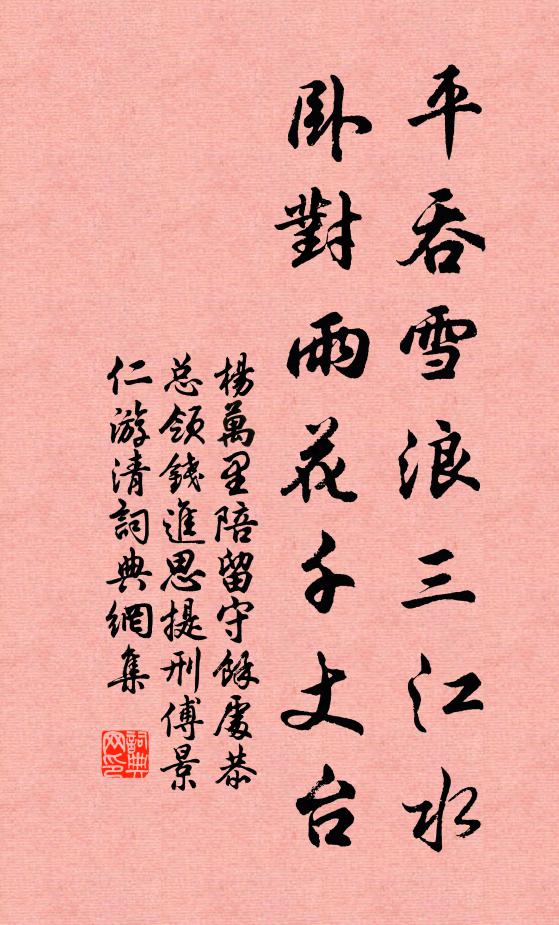 平吞雪浪三江水
卧對雨花千丈台
楊萬里陪留守餘處恭
总領錢進思提刑傅景
仁游清詞典網集
詞典网印